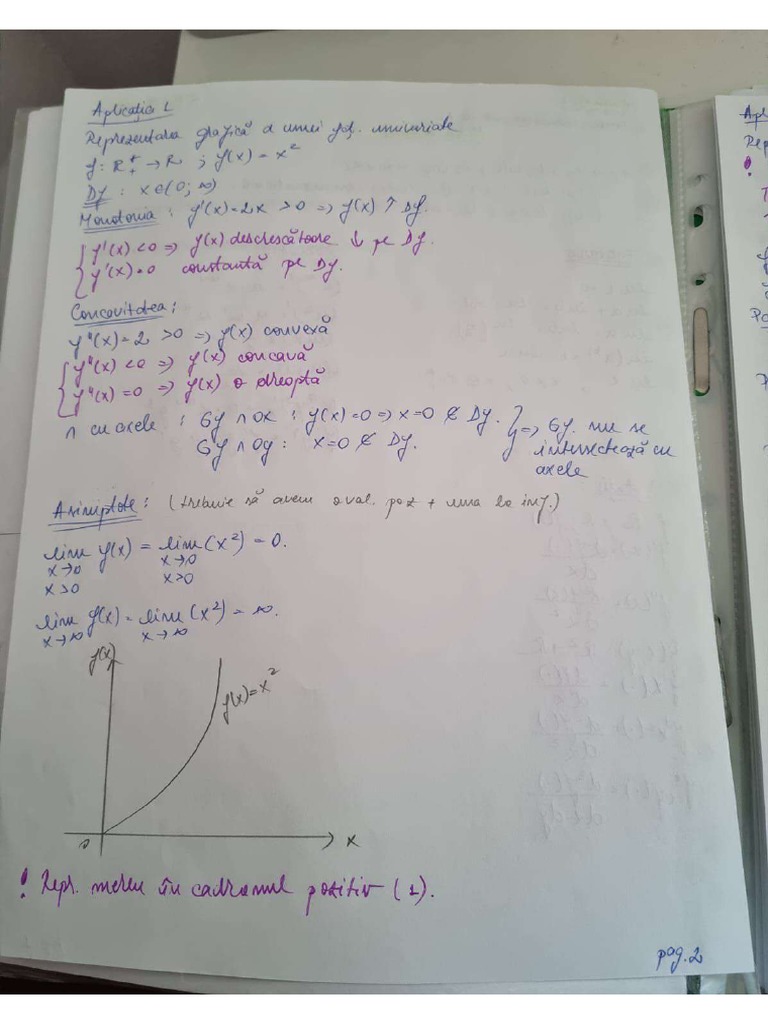 Aplicația 1
Reprezentarea grafică a unei fcț. univariate
f: R₊* → R ; f(x) = x²
Df : x∈(0; ∞)
Monotonia : f'(x) = 2x > 0 => f(x) ↑ Df.
f'(x) < 0 => f(x) descrescătoare ↓ pe Df.
f'(x) = 0 constantă pe Df.
Concavitatea :
f"(x) = 2 > 0 => f(x) convexă
f"(x) < 0 => f(x) concavă
f"(x) = 0 => f(x) o dreaptă
∩ cu axele : Gf ∩ ox : f(x) = 0 => x = 0 ∉ Df.
Gf ∩ oy : x = 0 ∉ Df.
} => Gf. nu se
intersectează cu
axele
Asimptote : (trebuie să avem o val. poz + una la inf.)
lim f(x) = lim (x²) = 0.
x→0 x→0
x>0 x>0
lim f(x) = lim (x²) = ∞.
x→∞ x→∞
f(x)
f(x) = x²
0
x
! Repr. mereu în cadranul pozitiv (1).
pag. 2